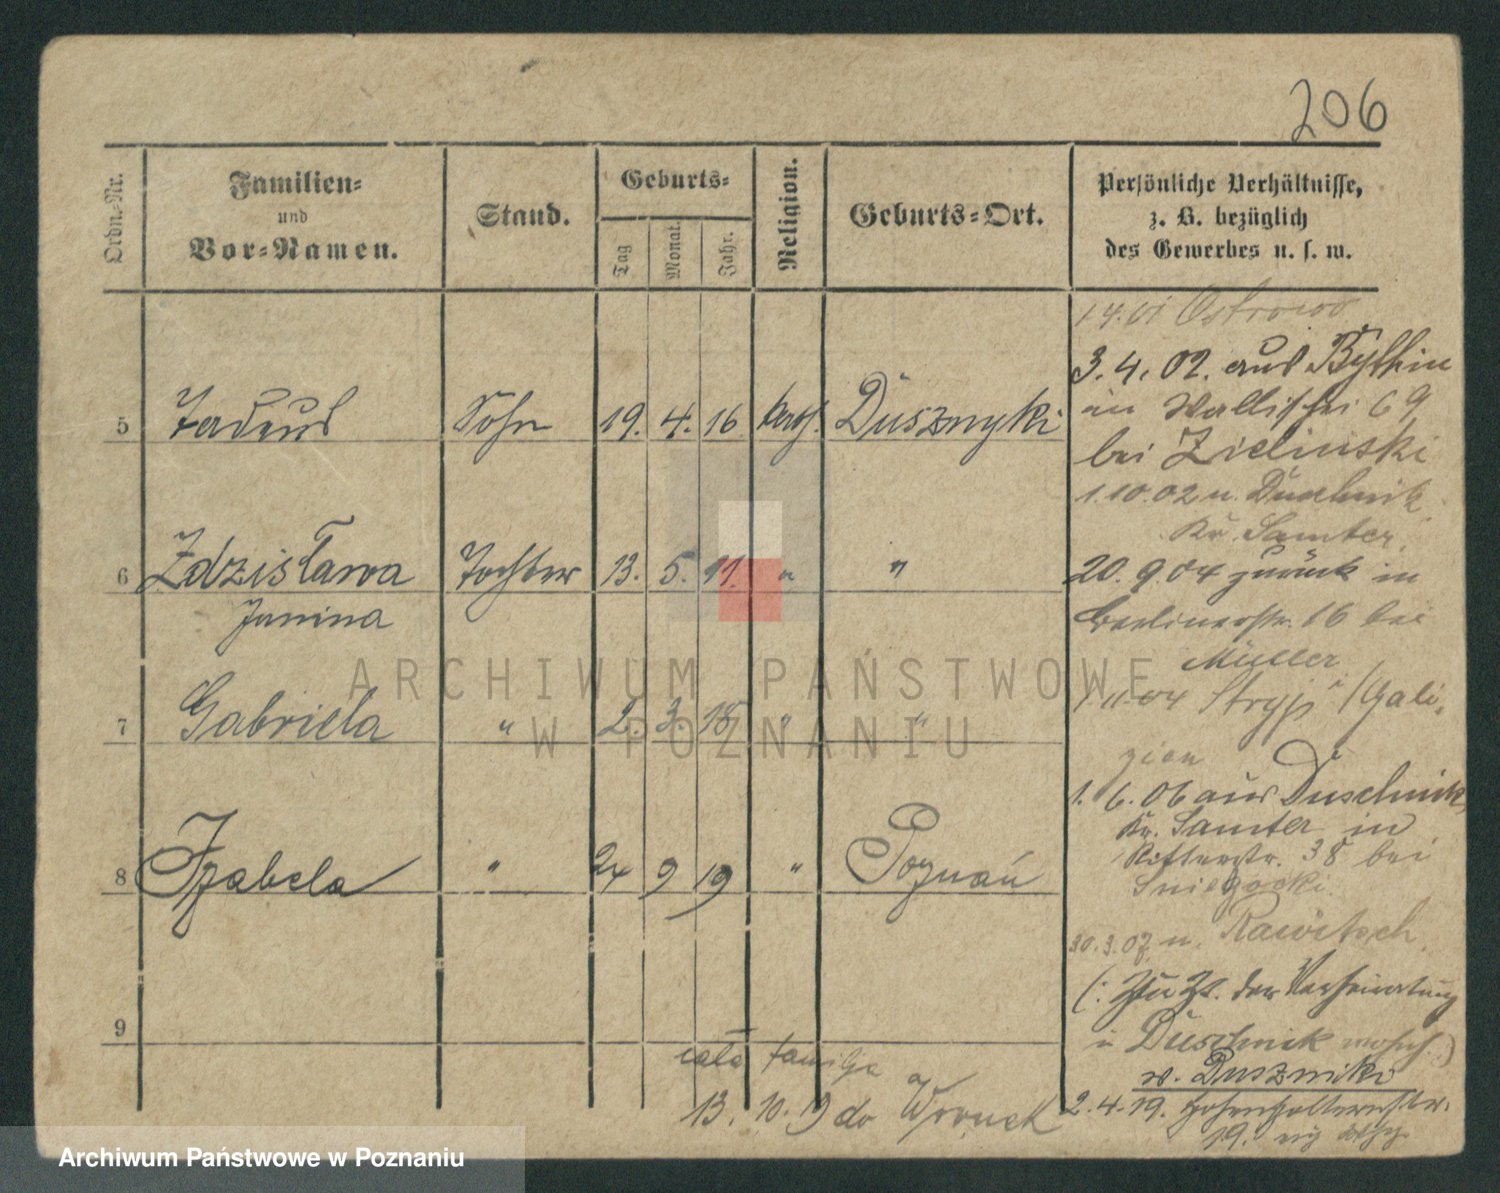 206
Ordn.-Nr.
Familien-
und
Vor-Namen.
Stand.
Geburts-
Tag
Monat.
Jahr.
Religion.
Geburts-Ort.
Persönliche Verhältnisse,
z. B. bezüglich
des Gewerbes u. s. w.
5 Tadeus Sohn 19. 4. 16 kath. Dusznyki
6 Zdzisława Tochter 13. 5. 11. " "
Janina
7 Gabriela " 2. 3. 18 " "
8 Izabela " 24 9 19 " Poznań
9
cała familja
13. 10. 19 do Wronek
Ostrowo
3. 4. 02. aus Bythin
in Wallischei 69
bei Zielinski
1.10.02 n. Duschnik
Kr. Samter.
20. 9.04 zurück in
Berlinerstr. 16 bei
Müller
1.11.04 Stryj (Gali-
zien
1. 6. 06 aus Duschnik
Kr. Samter in
Ritterstr. 38 bei
Sniegocki.
30.3.07 n. Rawitsch.
(: Zur Zt. der Verheiratung
in Duschnik wohnh.)
w. Duszniki
2.4.19. Hohenzollernstr.
19.
ARCHIWUM PAŃSTWOWE
W POZNANIU
Archiwum Państwowe w Poznaniu